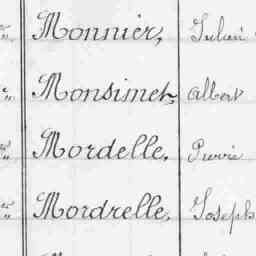 Monnier, Julien
Monsimet, Albert
Mordelle, Pierre
Mordrelle, Joseph